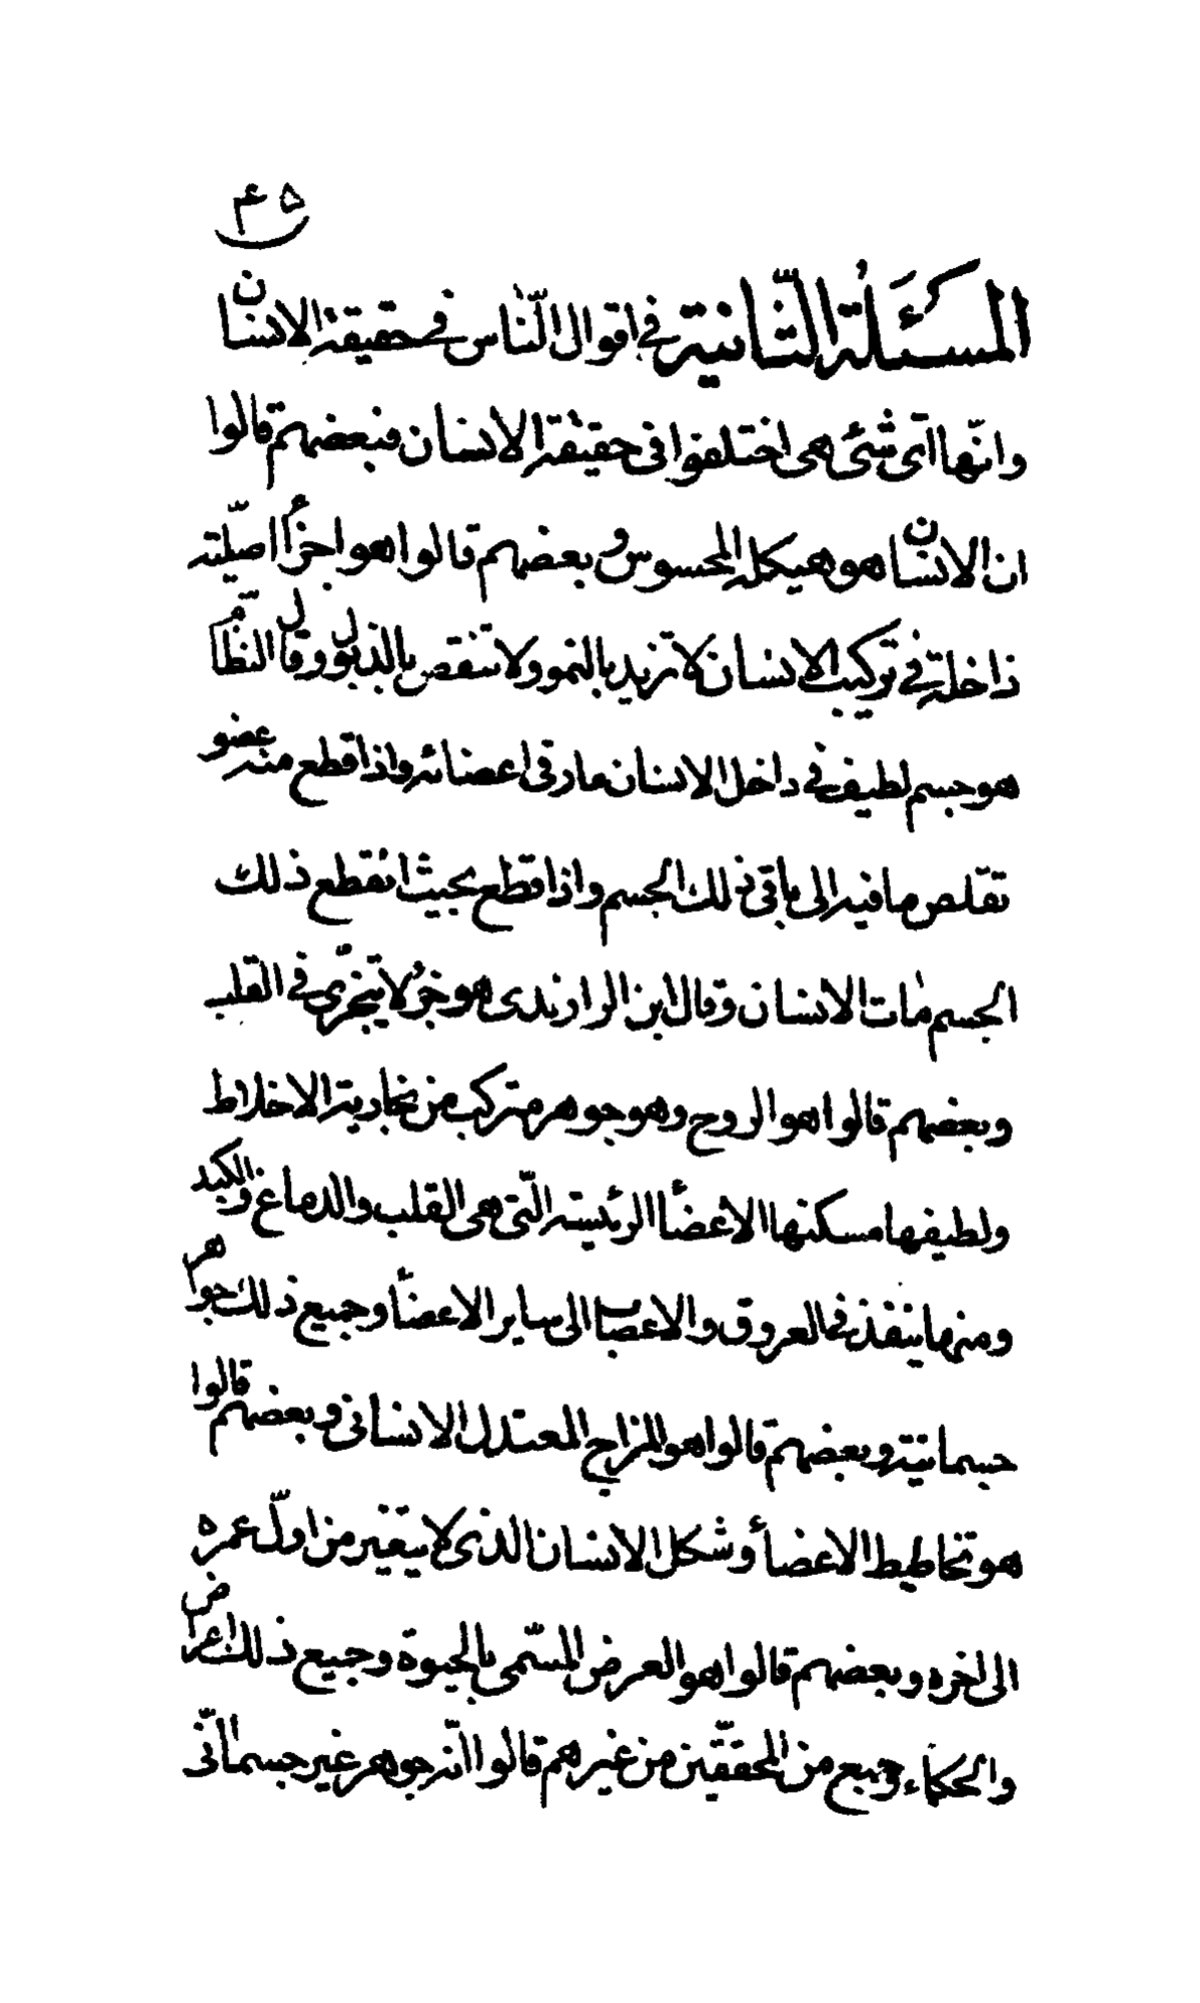 ٤٥
المسئلة الثّانية فى اقوال النّاس فى حقيقة الانسان
وانّها اىّ شئى هى اختلفوا فى حقيقة الانسان فبعضهم قالوا
ان الانسان هو هيكله المحسوس وبعضهم قالوا هو اجزأ اصيلّته
داخلة فى تركيب الانسان لا تزيد بالنمو ولا تنقص بالذبول وقال النظّام
هو جسم لطيف فى داخل الانسان مار فى اعضائه واذا قطع منه عضو
تقلّص ما فيه الى باقى ذلك الجسم واذا قطع بحيث انقطع ذلك
الجسم مات الانسان وقال ابن الراوندى هو جزء لا يتجزّى فى القلب
وبعضهم قالوا هو الروح وهو جوهر متركب من بخارية الاخلاط
ولطيفها مسكنها الاعضأ الرئيسته الّتى هى القلب والدماغ والكبد
ومنها ينفذ فى العروق والاعصاب الى ساير الاعضأ وجميع ذلك جواهر
جسمانية وبعضهم قالوا هو المزاج المعتدل الانسانى وبعضهم قالوا
هو تخاطيط الاعضأ وشكل الانسان الذى لا يتغير من اوّل عمره
الى اخره وبعضهم قالوا هو العرض المسّمى بالحيوة وجميع ذلك اعراض
والحكماء وجمع من المحقّقين من غيرهم قالوا انّه جوهر غير جسمانّى